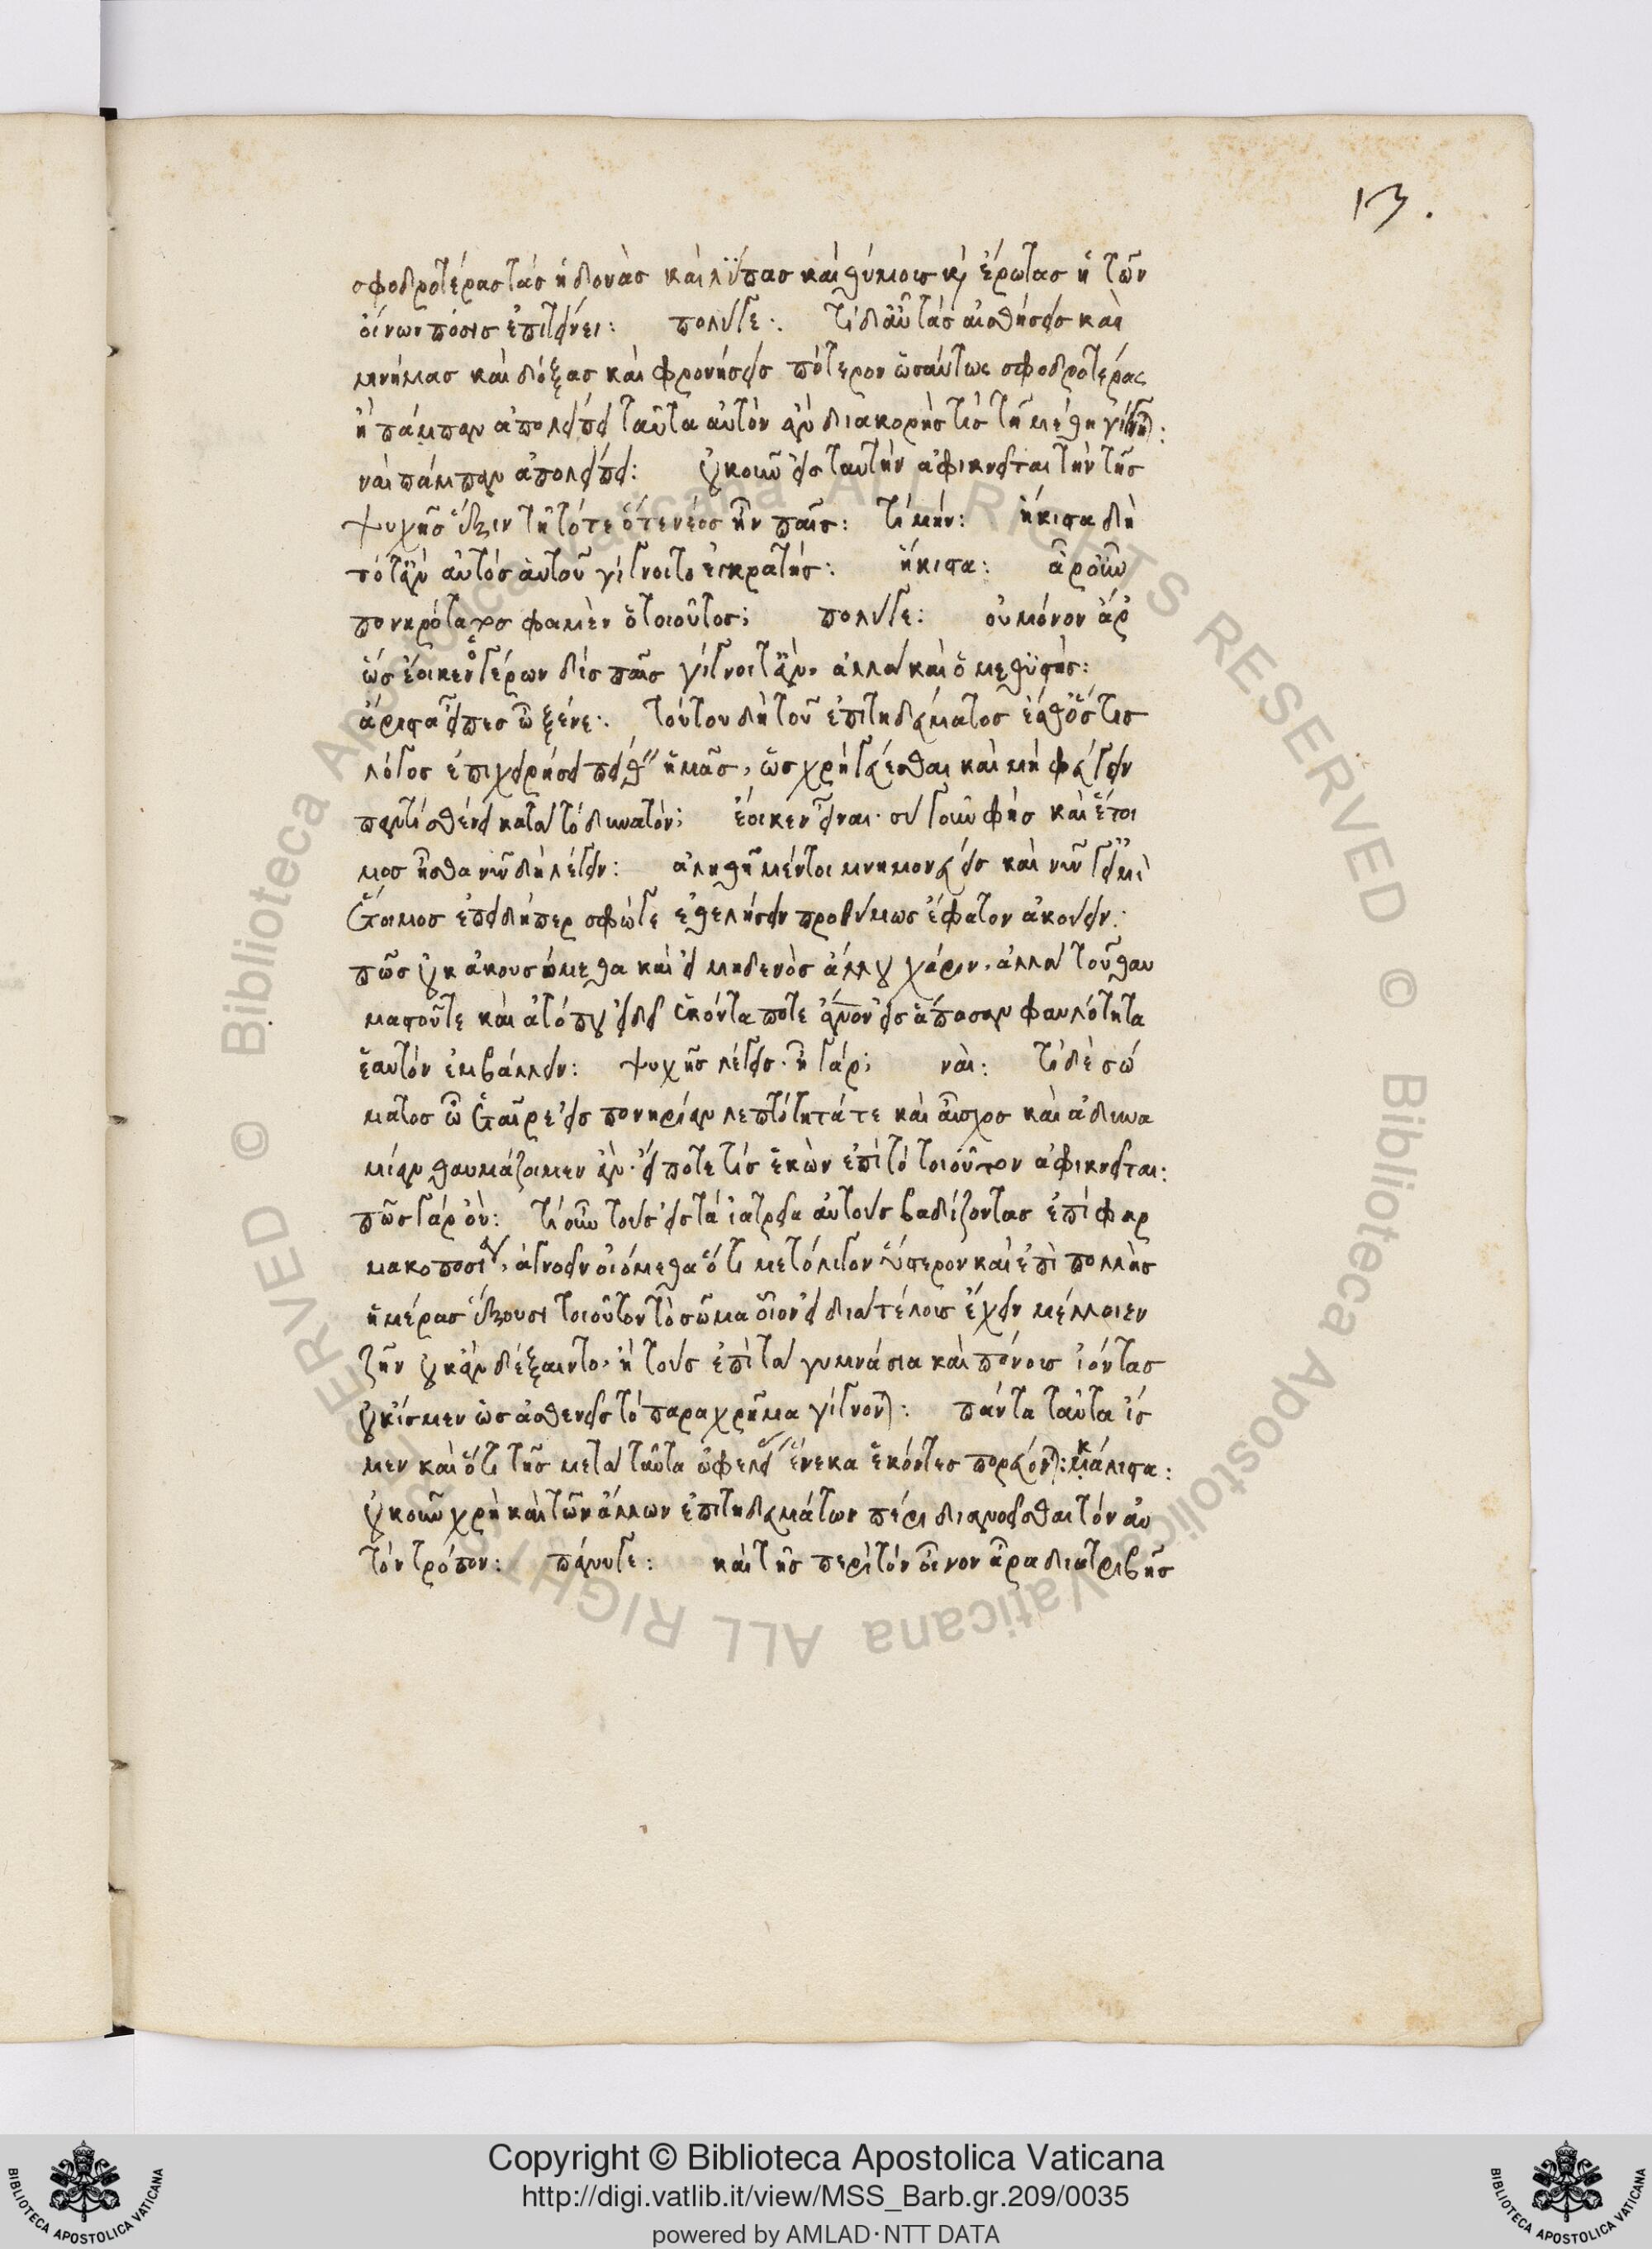 13.
σφοδροτέρας τὰς ἡδονὰς καὶ λύπας καὶ θυμοὺς καὶ ἔρωτας ἡ τῶν
οἴνων πόσις ἐπιτείνει: πολύ γε: τί δ' αὖ τὰς αἰσθήσεις καὶ
μνήμας καὶ δόξας καὶ φρονήσεις πότερον ὡσαύτως σφοδροτέρας
ἢ πάμπαν ἀπολείπει ταῦτα αὐτὸν ἂν διακορής τις τῇ μέθη γίγνηται:
ναὶ πάμπαν ἀπολείπει: οὐκοῦν εἰς ταυτὴν ἀφικνεῖται τὴν τῆς
ψυχῆς ἕξιν τῇ τότε ὅτε νέος ἦν παῖς: τί μήν: ἥκιστα δὴ
τότ' ἂν αὐτὸς αὑτοῦ γίγνοιτο ἐγκρατής: ἥκιστα: ἆρ' οὖν
πονηρότατος φαμὲν ὁ τοιοῦτος; πολύ γε: οὐ μόνον ἄρ'
ὡς ἔοικεν ὁ γέρων δὶς παῖς γίγνοιτ' ἂν, ἀλλὰ καὶ ὁ μεθυσθείς:
ἄριστα εἶπες ὦ ξένε: τούτου δὴ τοῦ ἐπιτηδεύματος ἔσθ' ὅστις
λόγος ἐπιχειρήσει πείθειν ἡμᾶς, ὡς χρὴ γεύεσθαι καὶ μὴ φεύγειν
παντὶ σθένει κατὰ τὸ δυνατόν; ἔοικεν εἶναι· σὺ γοῦν φὴς καὶ ἕτοι
μος ἦσθα νῦν δὴ λέγειν: ἀληθῆ μέντοι μνημονεύεις καὶ νῦν γ' εἰμὶ
ἕτοιμος ἐπειδήπερ σφώ γε ἐθελήσειν προθύμως ἔφατον ἀκούειν:
πῶς οὐκ ἀκουσόμεθα καὶ εἰ μηδενὸς ἄλλου χάριν, ἀλλὰ τοῦ θαυ
μαστοῦ τε καὶ ἀτόπου εἰ δεῖ ἑκόντα ποτε ἄνον εἰς ἅπασαν φαυλότητα
ἑαυτὸν ἐμβάλλειν: ψυχῆς λέγεις· ἦ γάρ; ναὶ: τί δὲ σώ
ματος ὦ ἑταῖρε εἰς πονηρίαν λεπτότητά τε καὶ αἶσχος καὶ ἀδυνα
μίαν θαυμάζοιμεν ἂν· εἴ ποτε τὶς ἑκὼν ἐπὶ τὸ τοιοῦτον ἀφικνεῖται:
πῶς γὰρ οὔ: τί οὖν τοὺς εἰς τὰ ἰατρεῖα αὐτοὺς βαδίζοντας ἐπὶ φαρ
μακοποσίαν, ἀγνοεῖν οἰόμεθα ὅτι μετ' ὀλίγον ὕστερον καὶ ἐπὶ πολλὰς
ἡμέρας ἕξουσι τοιοῦτον τὸ σῶμα οἷον εἰ διὰ τέλους ἔχειν μέλλοιεν
ζῆν οὐκ ἂν δέξαιντο, ἢ τοὺς ἐπὶ τὰ γυμνάσια καὶ πόνους ἰόντας
οὐκ ἴσμεν ὡς ἀσθενεῖς τὸ παραχρῆμα γίγνονται: πάντα ταῦτα ἴσ
μεν καὶ ὅτι τῆς μετὰ ταῦτα ὠφελείας ἕνεκα ἑκόντες πορεύονται: κάλλιστα:
οὐκοῦν χρὴ καὶ τῶν ἄλλων ἐπιτηδευμάτων πέρι διανοεῖσθαι τὸν αὐ
τὸν τρόπον: πάνυ γε: καὶ τῆς περὶ τὸν οἶνον ἄρα διατριβῆς
Copyright © Biblioteca Apostolica Vaticana
http://digi.vatlib.it/view/MSS_Barb.gr.209/0035
powered by AMLAD·NTT DATA
BIBLIOTECA APOSTOLICA VATICANA
BIBLIOTECA APOSTOLICA VATICANA
© Biblioteca Apostolica Vaticana ALL RIGHTS RESERVED © Biblioteca Apostolica Vaticana ALL RIGHTS RESERVED